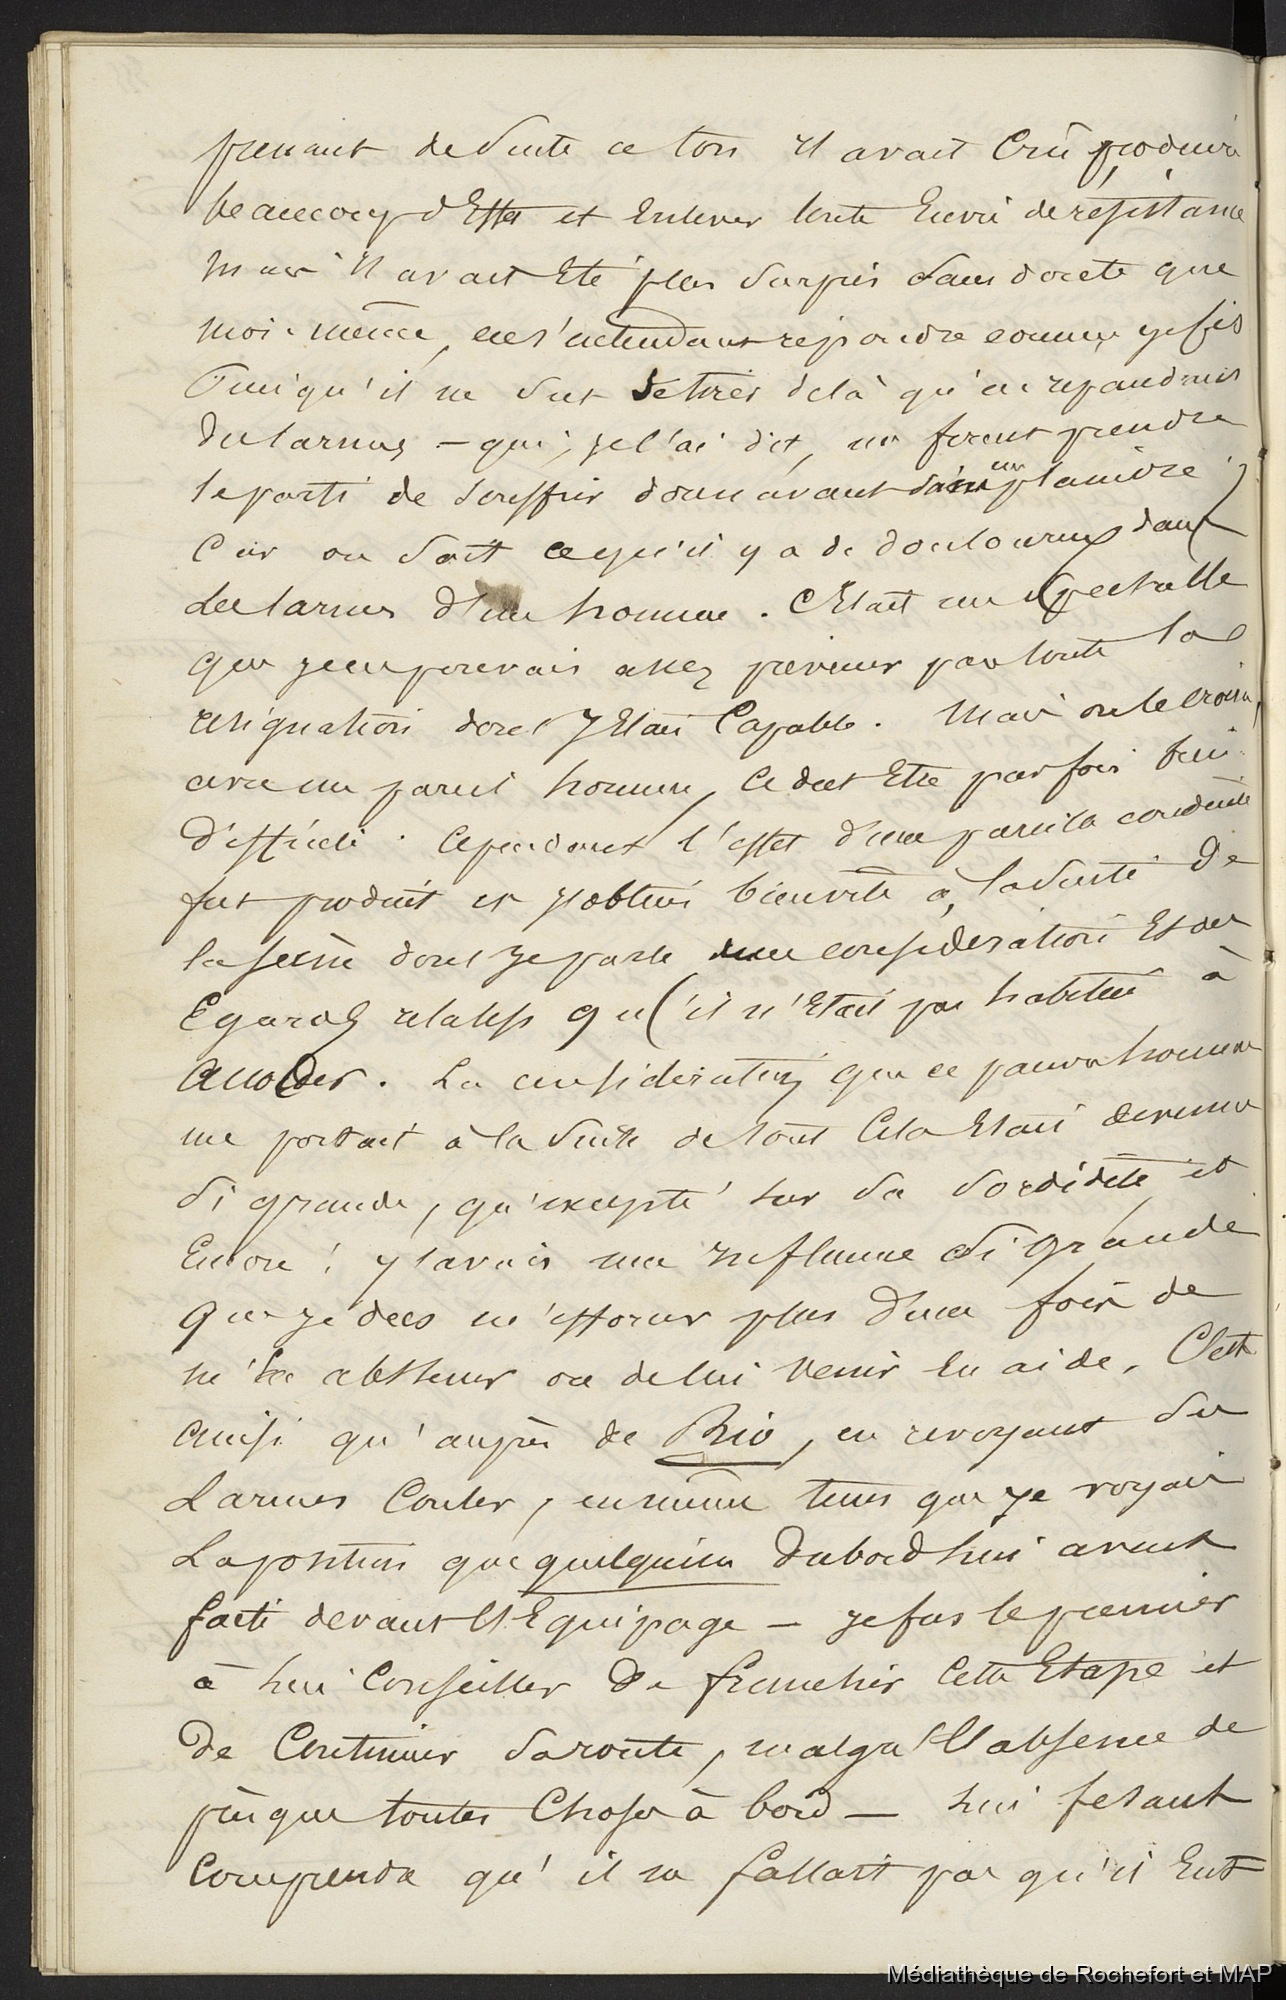 prenant de suite ce ton il avait Crû produire
beaucoup d'Effet et Enlever toute Envie de résistance
mais il avait Eté plus surpris sans doute que
moi-même, en s'entendant répondre comme je fis
Puisqu'il ne sut se tirer delà qu'en repandant
des larmes – qui, je l'ai dit, me firent prendre
le parti de souffrir dorénavant sans me plaindre
Car on sait ce qu'il y a de douloureux dans
des larmes d'un homme. C'Etait un spectacle
que je ne pouvais assez prévenir par toute la
résignation dont j'Etais Capable. Mais on le croira,
avec un pareil homme, ce dut Etre parfois bien
difficile. Cependant l'effet d'une pareille conduite
fut produit et j'obtins bien vite à la suite de
la scène dont je parle une considération Et des
Egards relatifs qu'il n'Etait pas habitué à
accorder. La considération que ce pauvre homme
me portait à la suite de tout Cela Etait devenue
si grande, qu'excepté sur sa sordidité et
Encore! j'avais une influence si grande
que je dus m'efforcer plus d'une fois de
m'en abstenir ou de lui venir En aide. C'est
ainsi qu'auprès de Rio, en revoyant ses
Larmes Couler, en même tems que je voyais
La position que quelqu'un du bord lui avait
faite devant l'Equipage – je fus le premier
à lui Conseiller De franchir Cette Etape et
De Continuer sa route, malgré l'absence de
presque toutes Choses à bord – lui fesant
Comprendre qu'il ne fallait pas qu'il Eut
Médiathèque de Rochefort et MAP